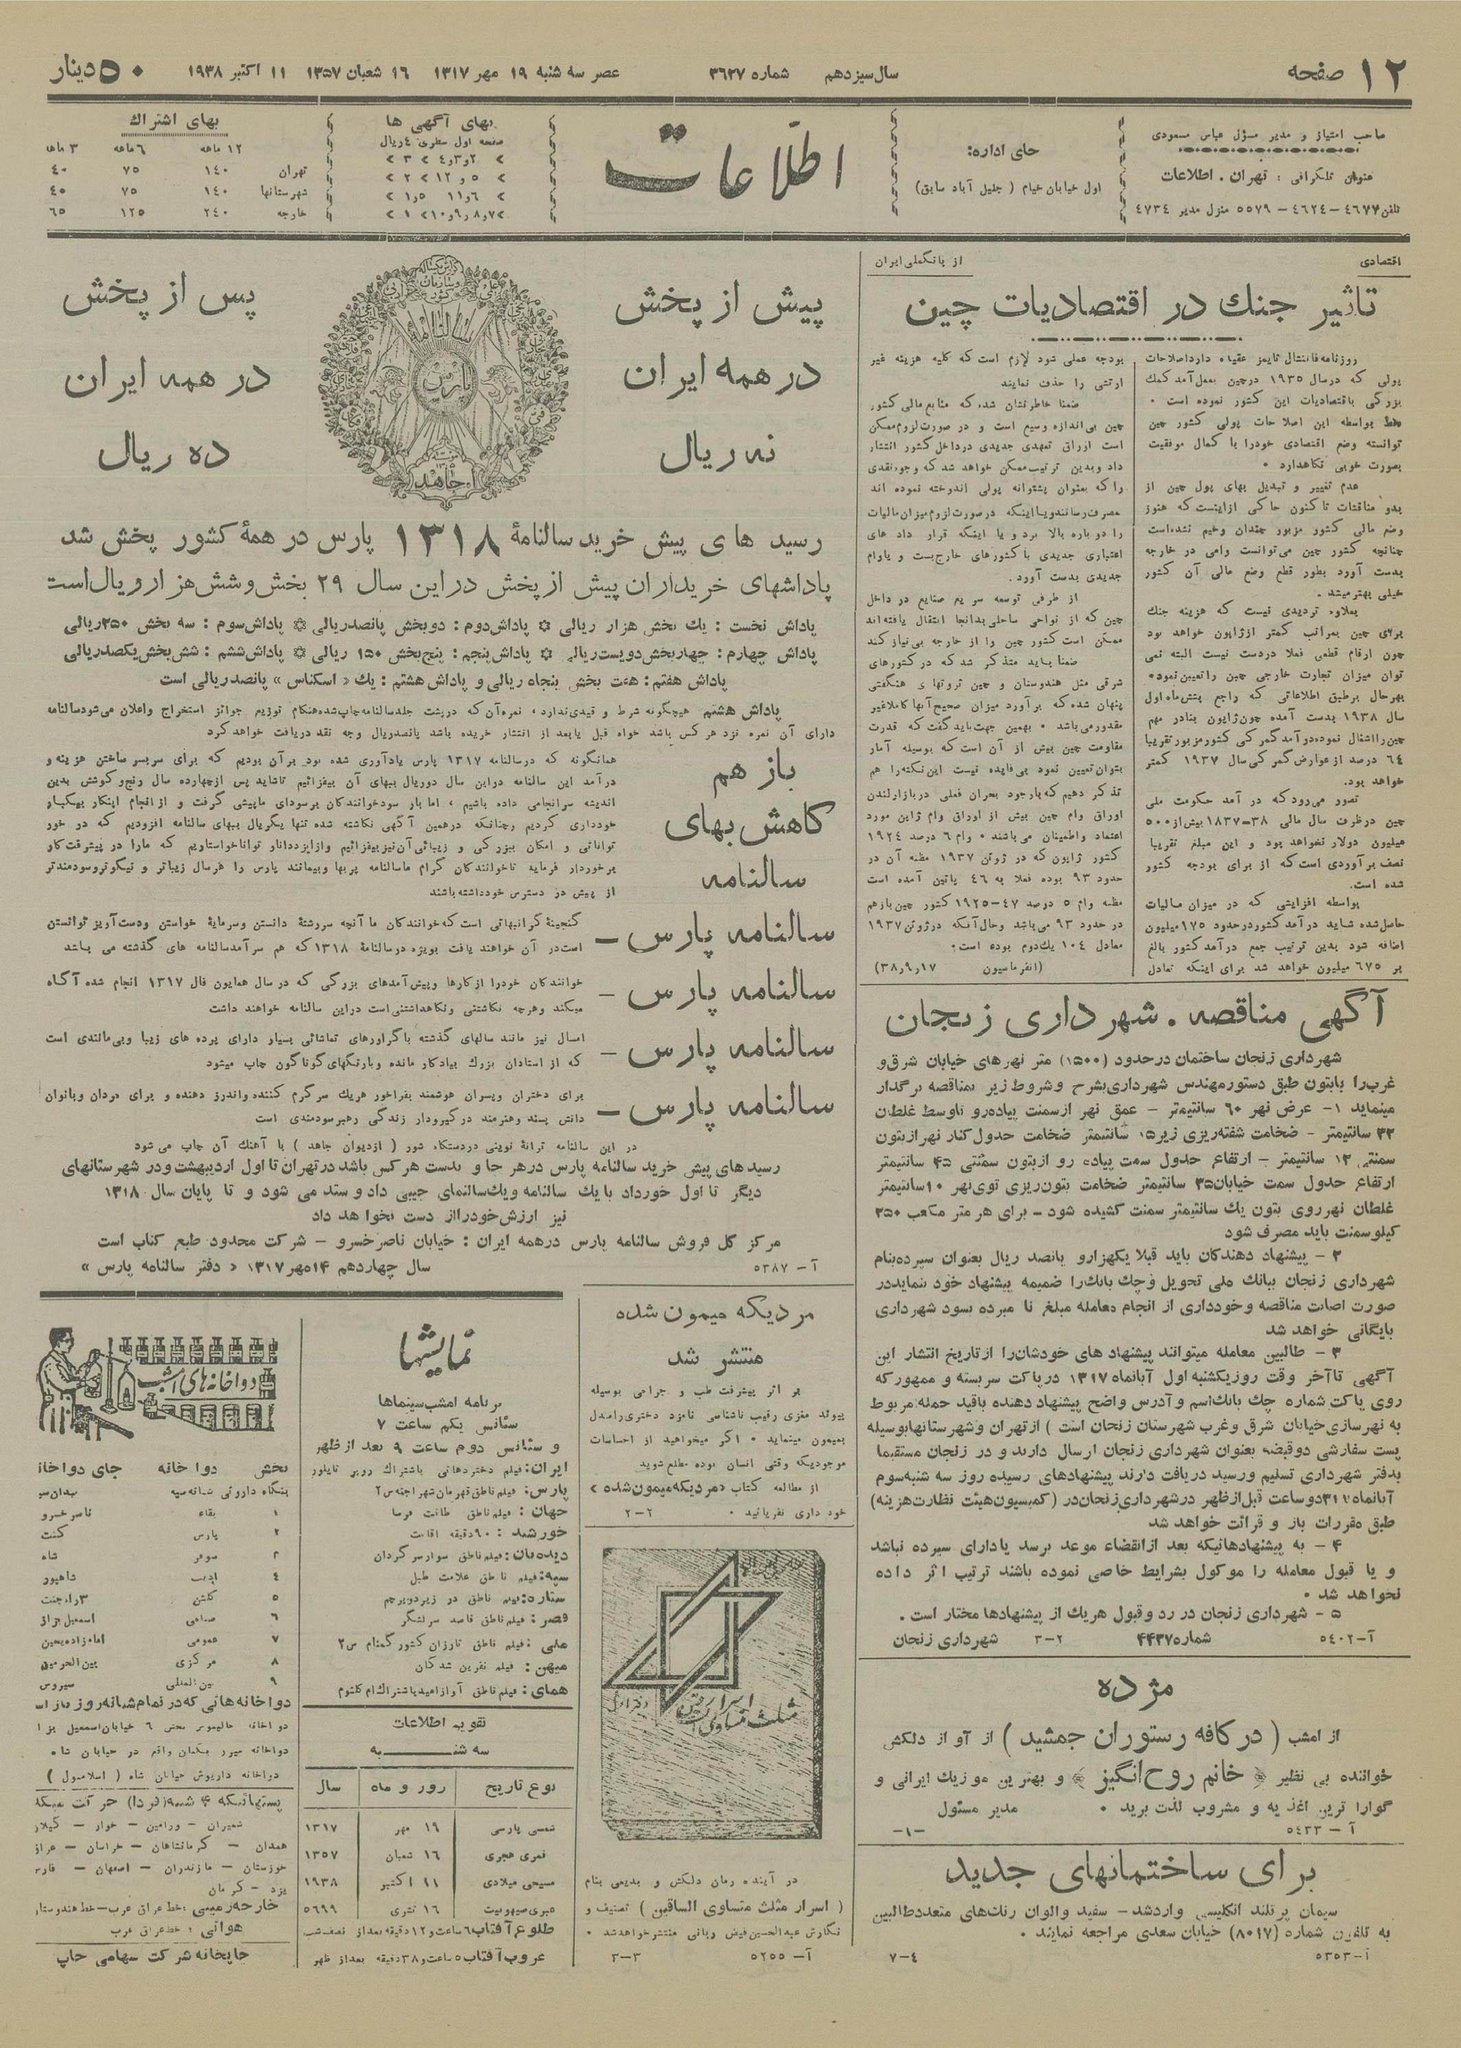 ۱۲ صفحه
سال سیزدهم
شماره ۳۶۲۷
عصر سه شنبه ۱۹ مهر ۱۳۱۷
۱۶ شعبان ۱۳۵۷
۱۱ اکتبر ۱۹۳۸
۵۰ دینار
صاحب امتیاز و مدیر مسؤل عباس مسعودی
عنوان تلگرافی : تهران . اطلاعات
تلفن ۴۶۷۷ - ۴۶۲۴ - ۵۵۷۹ منزل مدیر ۴۷۳۴
جای اداره:
اول خیابان خیام ( جلیل آباد سابق)
اطلاعات
بهای آگهی ها
صفحه اول سطری ۴ ریال
بهای اشتراك
۱۲ ماهه ۶ ماهه ۳ ماهه
تهران ۱۴۰ ۷۵ ۴۰
شهرستانها ۱۴۰ ۷۵ ۴۰
خارجه ۲۴۰ ۱۲۵ ۶۵
اقتصادی
از بانک‌ملی ایران
تأثیر جنك در اقتصادیات چین
روزنامه فاینانشال تایمز عقیده دارد اصلاحات
پولی که درسال ۱۹۳۵ درچین بعمل آمد کمك
بزرگی باقتصادیات این کشور نموده است .
فقط بواسطه این اصلاحات پولی کشور چین
توانسته وضع اقتصادی خودرا با کمال موفقیت
بصورت خوبی نگاهدارد .
عدم تغییر و تبدیل بهای پول چین از
بدو مناقشات تاکنون حاکی ازاینست که هنوز
وضع مالی کشور مزبور چندان وخیم نشده‌است
چنانچه کشور چین می‌توانست وامی در خارجه
بدست آورد بطور قطع وضع مالی آن کشور
خیلی بهتر میشد .
بعلاوه تردیدی نیست که هزینه جنك
برای چین بمراتب کمتر ازژاپون خواهد بود
چون ارقام قطعی فعلا دردست نیست البته نمی
توان میزان تجارت خارجی چین را تعیین نمود.
بهرحال برطبق اطلاعاتی که راجع بشش‌ماه اول
سال ۱۹۳۸ بدست آمده چون ژاپون بنادر مهم
چین را اشغال نموده درآمد گمرکی کشور مزبور تقریبا
۶۴ درصد از عوارض گمرکی سال ۱۹۳۷ کمتر
خواهد بود.
تصور می‌رود که در آمد حکومت ملی
چین درظرف سال مالی ۳۸-۱۸۳۷ بیش از ۵۰۰
میلیون دولار نخواهد بود و این مبلغ تقریبا
نصف برآوردی است که از برای بودجه کشور
شده است.
بواسطه افزایشی که در میزان مالیات
حاصل شده شاید درآمد کشور درحدود ۱۷۵ میلیون
اضافه شود بدین ترتیب جمع درآمد کشور بالغ
بر ۶۷۵ میلیون خواهد شد برای اینکه تعادل
بودجه عملی شود لازم است که کلیه هزینه غیر
ارتشی را حذف نمایند
ضمنا خاطرنشان شده که منابع مالی کشور
چین بی‌اندازه وسیع است و در صورت لزوم ممکن
است اوراق تعهدی جدیدی درداخل کشور انتشار
داد وبدین ترتیب ممکن خواهد شد که وجوه نقدی
را که بعنوان پشتوانه پولی اندوخته نموده اند
مصرف رسانند ویا اینکه درصورت لزوم میزان مالیات
را دوباره بالا برد و یا اینکه قرار داد های
اعتباری جدیدی با کشورهای خارج بست و یا وام
جدیدی بدست آورد.
از طرفی توسعه سریع صنایع در داخل
چین که از نواحی ساحلی بدانجا انتقال یافته اند
ممکن است کشور چین را از خارجه بی‌نیاز کند
ضمنا باید متذکر شد که در کشورهای
شرقی مثل هندوستان و چین ثروتهای هنگفتی
پنهان شده که برآورد میزان صحیح آنها کاملا غیر
مقدور می‌باشد . بهمین جهت باید گفت که قدرت
مقاومت چین بیش از آن است که بوسیله آمار
بتوان تعیین نمود بی‌فایده نیست این نکته را هم
تذکر دهیم که باوجود بحران فعلی در بازار لندن
اوراق وام چین بیش از اوراق وام ژاپن مورد
اعتماد واطمینان می‌باشند . وام ۶ درصد ۱۹۲۴
کشور ژاپون که در ژوئن ۱۹۳۷ مظنه آن در
حدود ۹۳ بوده فعلا به ۴۶ پائین آمده است
مظنه وام ۵ درصد ۴۷-۱۹۲۵ کشور چین بازهم
در حدود ۹۳ می‌باشد وحال آنکه درژوئن ۱۹۳۷
معادل ۱۰۴ یك‌دوم بوده است.
(انفرماسیون ۳۸/۹/۱۷)
آگهی مناقصه . شهرداری زنجان
شهرداری زنجان ساختمان درحدود (۱۵۰۰) متر نهرهای خیابان شرق و
غرب را بابتون طبق دستور مهندس شهرداری بشرح وشروط زیر بمناقصه برگذار
مینماید ۱- عرض نهر ۶۰ سانتیمتر - عمق نهر ازسمت پیاده‌رو تاوسط غلطان
۳۳ سانتیمتر - ضخامت شفته‌ریزی زیر ۱۵ سانتیمتر ضخامت جدول کنار نهر ازبتون
سمنتی ۱۲ سانتیمتر - ارتفاع جدول سمت پیاده رو ازبتون سمنتی ۴۵ سانتیمتر
ارتفاع جدول سمت خیابان ۳۵ سانتیمتر ضخامت بتون‌ریزی توی نهر ۱۰ سانتیمتر
غلطان نهر روی بتون یك سانتیمتر سمنت کشیده شود - برای هر متر مکعب ۲۵۰
کیلو سمنت باید مصرف شود
۲ - پیشنهاد دهندگان باید قبلا یکهزارو پانصد ریال بعنوان سپرده‌بنام
شهرداری زنجان ببانك ملی تحویل وچك بانك را ضمیمه پیشنهاد خود نماید در
صورت اصابت مناقصه وخودداری از انجام معامله مبلغ نا مبرده بسود شهرداری
بایگانی خواهد شد
۳ - طالبین معامله میتوانند پیشنهاد های خودشان را ازتاریخ انتشار این
آگهی تاآخر وقت روز یکشنبه اول آبانماه ۱۳۱۷ درپاکت سربسته و ممهور که
روی پاکت شماره چك بانك اسم و آدرس واضح پیشنهاد دهنده باقید جمله مربوط
به نهرسازی خیابان شرق وغرب شهرستان زنجان است ) ازتهران وشهرستانها بوسیله
پست سفارشی دوقبضه بعنوان شهرداری زنجان ارسال دارند و در زنجان مستقیما
بدفتر شهرداری تسلیم ورسید دریافت دارند پیشنهادهای رسیده روز سه شنبه سوم
آبانماه ۳۱۷ دوساعت قبل ازظهر درشهرداری زنجان در (کمیسیون هیئت نظارت هزینه)
طبق مقررات باز و قرائت خواهد شد
۴ - به پیشنهادهائیکه بعد ازانقضاء موعد برسد یادارای سپرده نباشد
و یا قبول معامله را موکول بشرایط خاصی نموده باشند ترتیب اثر داده
نخواهد شد .
۵ - شهرداری زنجان در رد وقبول هریك از پیشنهادها مختار است .
آ-۵۴۰۲ شماره ۴۴۳۷ ۳-۲ شهرداری زنجان
مژده
از امشب ( در کافه رستوران جمشید ) از آواز دلکش
خواننده بی نظیر « خانم روح‌انگیز » و بهترین موزیك ایرانی و
گوارا ترین اغذیه و مشروب لذت برید . مدیر مسئول
آ - ۵۴۳۳ -۱-
برای ساختمانهای جدید
سیمان پرتلند انگلیسی واردشد - سفید والوان رنك‌های متعدد طالبین
به تلفون شماره (۸۰۱۷) خیابان سعدی مراجعه نمایند .
آ-۵۳۵۳ ۷-۴
پیش از پخش
در همه ایران
نه ریال
سالنامه
پارس
ا.جاهد
پس از پخش
در همه ایران
ده ریال
رسید های پیش خرید سالنامهٔ ۱۳۱۸ پارس در همهٔ کشور پخش شد
پاداشهای خریداران پیش از پخش دراین سال ۲۹ بخش وشش هزار ریال است
پاداش نخست : یك بخش هزار ریالی ۞ پاداش دوم : دوبخش پانصدریالی ۞ پاداش سوم : سه بخش ۲۵۰ ریالی
پاداش چهارم : چهاربخش دویست ریالی ۞ پاداش پنجم : پنج‌بخش ۱۵۰ ریالی ۞ پاداش ششم : شش‌بخش یکصدریالی
پاداش هفتم : هفت بخش پنجاه ریالی و پاداش هشتم : یك « اسکناس » پانصدریالی است
پاداش هشتم هیچگونه شرط و قیدی ندارد ، نمره آن که درپشت جلد سالنامه چاپ شده هنگام توزیع جوائز استخراج واعلان می‌شود سالنامه
دارای آن نمره نزد هر کس باشد خواه قبل یابعد از انتشار خریده باشد پانصدریال وجه نقد دریافت خواهد کرد
باز هم
کاهش بهای
سالنامه
همانگونه که درسالنامه ۱۳۱۷ پارس یادآوری شده بود برآن بودیم که برای سربسر ساختن هزینه و
درآمد این سالنامه دراین سال دوریال ببهای آن بیفزائیم تاشاید پس ازچهارده سال رنج وکوشش بدین
اندیشه سرانجامی داده باشیم ، اما باز سودخوانندگان برسودای ما پیشی گرفت و ازانجام اینکار بیکبار
خودداری کردیم وچنانکه درهمین آگهی نگاشته شده تنها یکریال ببهای سالنامه افزودیم که در خور
توانائی و امکان ببزرگی و زیبائی آن نیز بیفزائیم وازایزد دانار توانا خواستاریم که مارا در پیشرفت کار
برخوردار فرماید تاخوانندگان گرام ما سالنامه پربها وبیمانند پارس را هرسال زیباتر و نیکوتر وسودمندتر
از پیش در دسترس خود داشته باشند
سالنامه پارس - گنجینهٔ گرانبهائی است که خوانندگان ما آنچه سررشتهٔ دانستن وسرمایهٔ خواستن ودست آویز توانستن
است در آن خواهند یافت بویژه درسالنامهٔ ۱۳۱۸ که هم سرآمد سالنامه های گذشته می باشد
سالنامه پارس - خوانندگان خودرا ازکارها وپیش‌آمدهای بزرگی که در سال همایون فال ۱۳۱۷ انجام شده آگاه
میکند وهرچه نگاشتنی ونگاهداشتنی است دراین سالنامه خواهند داشت
سالنامه پارس - امسال نیز مانند سالهای گذشته باگراورهای تماشائی بسیار دارای پرده های زیبا وبی‌مانندی است
که از استادان بزرك بیادگار مانده وبارنگهای گوناگون چاپ میشود
سالنامه پارس - برای دختران وپسران هوشمند بفراخور هریك سرگرم کننده واندرز دهنده و برای مردان وبانوان
دانش پسند وهنرمند درگیرودار زندگی رهبر سودمندی است
در این سالنامه ترانهٔ نوینی دردستگاه شور ( ازدیوان جاهد ) با آهنك آن چاپ می شود
رسید های پیش خرید سالنامه پارس درهر جا و بدست هر کس باشد درتهران تا اول اردیبهشت ودر شهرستانهای
دیگر تا اول خورداد با یك سالنامه ویك سالنمای جیبی داد وستد می شود و تا پایان سال ۱۳۱۸
نیز ارزش خودراز دست نخوا هد داد
مرکز کل فروش سالنامه پارس درهمه ایران : خیابان ناصرخسرو - شرکت محدود طبع کتاب است
آ- ۵۳۸۷ سال چهاردهم ۱۴ مهر ۱۳۱۷ « دفتر سالنامه پارس »
مردیکه میمون شده
منتشر شد
بر اثر پیشرفت طب و جراحی بوسیله
پیوند مغزی رقیب ناشناسی نامزد دختری را مبدل
بمیمون مینماید . اگر میخواهید از احساسات
موجودیکه وقتی انسان بوده مطلع شوید
از مطالعه کتاب «مردیکه میمون شده»
خود داری نفرمائید . ۲-۲
اسرار مثلث متساوی الساقین
دفتر اول
در آینده رمان دلکش و بدیعی بنام
( اسرار مثلث متساوی الساقین ) تصنیف و
نگارش عبدالحسین فیض ربانی منتشر خواهد شد .
آ- ۵۲۵۵ ۳-۳
نمایشها
برنامه امشب سینماها
سئانس یکم ساعت ۷
و سئانس دوم ساعت ۹ بعد ازظهر
ایران: فیلم دختر دهاتی باشتراك روبر تایلور
پارس: فیلم ناطق قهرمان شهر اجنه س۲
جهان: فیلم ناطق طاقت فرسا
خورشید : ۹۰ دقیقه اقامت
دیده‌بان: فیلم ناطق سوار سرگردان
سپه: فیلم ناطق علامت طبل
ستاره: فیلم ناطق در زیر دو پرچم
قصر: فیلم ناطق قاصد سرلشگر
ملی: فیلم ناطق تارزان کشور گمنام س۲
میهن: فیلم نفرین شدگان
همای: فیلم ناطق آواز امید باشتراك ام کلثوم
تقویم اطلاعات
سه شنبه
نوع تاریخ روز و ماه سال
شمسی پارسی ۱۹ مهر ۱۳۱۷
قمری هجری ۱۶ شعبان ۱۳۵۷
مسیحی میلادی ۱۱ اکتبر ۱۹۳۸
عبری صیهونیت ۱۶ تشری ۵۶۹۹
طلوع آفتاب ۶ ساعت و ۱۲ دقیقه بعد از نصف شب
غروب آفتاب ۵ ساعت و ۳۸ دقیقه بعد از ظهر
دواخانه‌های امشب
بخش دوا خانه جای دواخانه
بنگاه داروئی شبانه سپه میدان سپه
۱ بقاء ناصرخسرو
۲ پارس کنت
۳ سوفر شاه
۴ ادیب شاهپور
۵ گلشن
۶ صناعی اسمعیل بزاز
۷ عمومی امامزاده یحیی
۸ مرکزی بین‌الحرمین
۹ بین‌المللی سیروس
دواخانه‌هائی که در تمام شبانه روز باز است
دواخانه داریوش خیابان شاه ( اسلامبول )
پستهائیکه ۴ شنبه (فردا) حرکت میکند
شمیران - ورامین - خوار - گیلان
همدان - کرمانشاهان - خراسان - عراق
خوزستان - مازندران - اصفهان - فارس
یزد - کرمان
خارجه زمینی : خط عراق عرب - خط هندوستان
هوائی : خط عراق عرب
چاپخانه شرکت سهامی چاپ